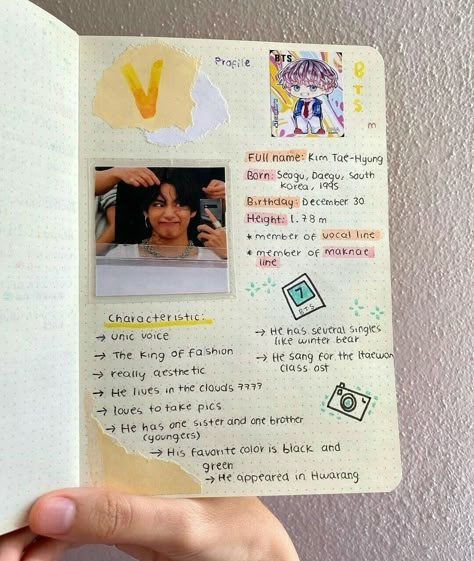 V
Profile
BTS
BTS
m
Full name: Kim Tae-Hyung
Born: Seogu, Daegu, South
Korea, 1995
Birthday: December 30
Height: 1.78 m
* member of vocal line
* member of maknae
line
7
BTS
Characteristic:
→ unic voice
→ The king of fashion
→ really aesthetic
→ He lives in the clouds ????
→ loves to take pics
→ He has one sister and one brother
(youngers)
→ His favorite color is black and
green
→ He appeared in Hwarang
→ He has several singles
like winter bear
→ He sang for the Itaewon
class ost